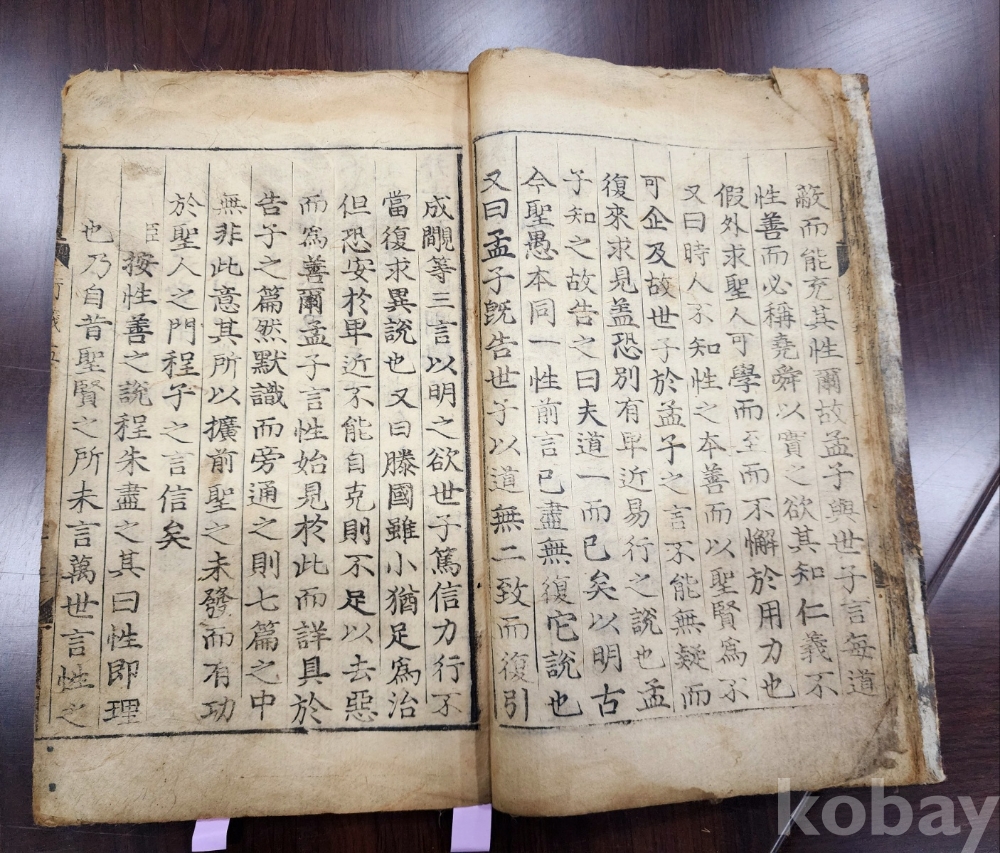 蔽而能充其性爾故孟子與世子言每道
性善而必稱堯舜以實之欲其知仁義不
假外求聖人可學而至而不懈於用力也
又曰時人不知性之本善而以聖賢爲不
可企及故世子於孟子之言不能無疑而
復來求見盖恐別有卑近易行之說也孟
子知之故告之曰夫道一而已矣以明古
今聖愚本同一性前言已盡無復它說也
又曰孟子旣告世子以道無二致而復引
成覵等三言以明之欲世子篤信力行不
當復求異說也又曰滕國雖小猶足爲治
但恐安於卑近不能自克則不足以去惡
而爲善爾孟子言性始見於此而詳具於
告子之篇然默識而旁通之則七篇之中
無非此意其所以擴前聖之未發而有功
於聖人之門程子之言信矣
臣按性善之說程朱盡之其曰性即理
也乃自昔聖賢之所未言萬世言性之
kobay